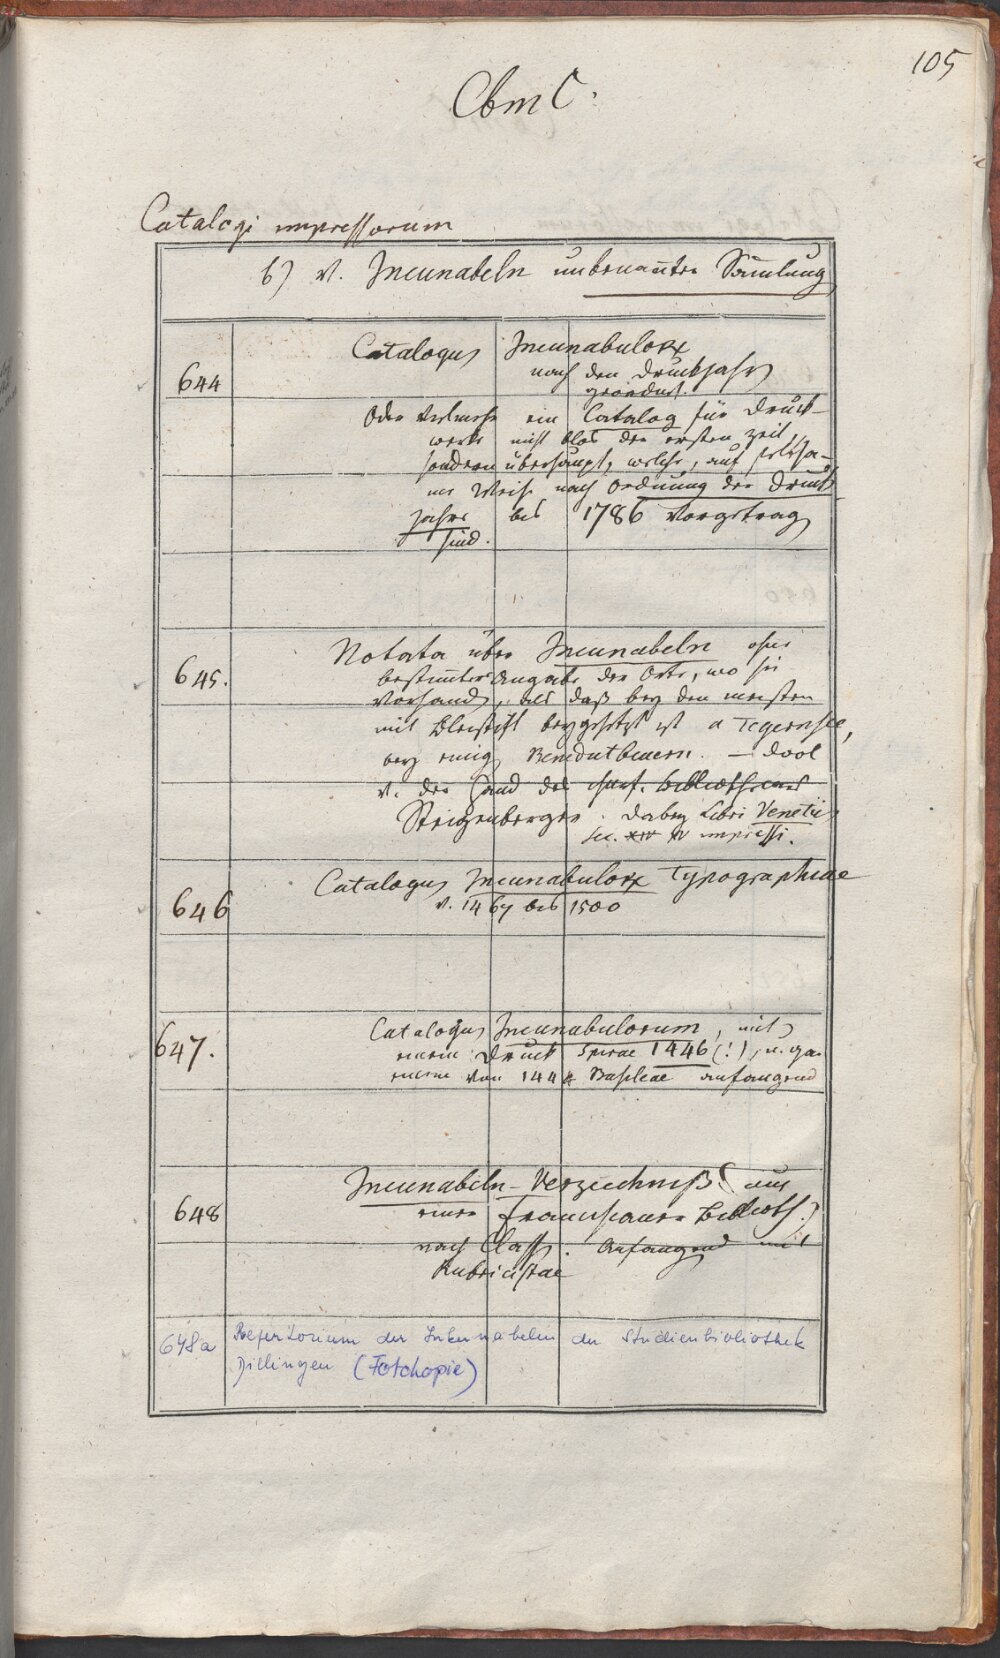 105
Cbm C.
Catalogi impressorum
b) v. Incunabeln unbenan̄ter Sam̄lung
644
Catalogus Incunabulor.
nach den Druckjahren
geordnet.
Oder vielmehr ein Catalog für Druck-
werke nicht blos der ersten Zeit
sondern überhaupt, welche, auf seltsa-
me Weise nach Ordnung der Druck
Jahre bis 1786 vorgetragen
sind.
645.
Notata über Incunabeln ohne
bestim̄ter Angabe der Orte, wo sie
vorhanden, als daß bey den meisten
mit Bleistift beygesetzt ist a Tegernsee,
bey einigen Benedictbeuern. —
v. der Hand des churf. Bibliothecars
Steigenberger. Dabey Libri Venetiis
sec. XIV XV impressi.
646
Catalogus Incunabulor. Typographiae
v. 1467 bis 1500
647.
Catalogus Incunabulorum, mit
einem Druck Spirae 1446 (!), u.
einem von 1444 Basileae anfangend
648
Incunabeln-Verzeichniß (aus
einer Franciscaner Biblioth.)
nach Classen. Anfangend mit
Rubricistae
648a
Repertorium der Inkunabeln der Studienbibliothek
Dillingen (Fotokopie)